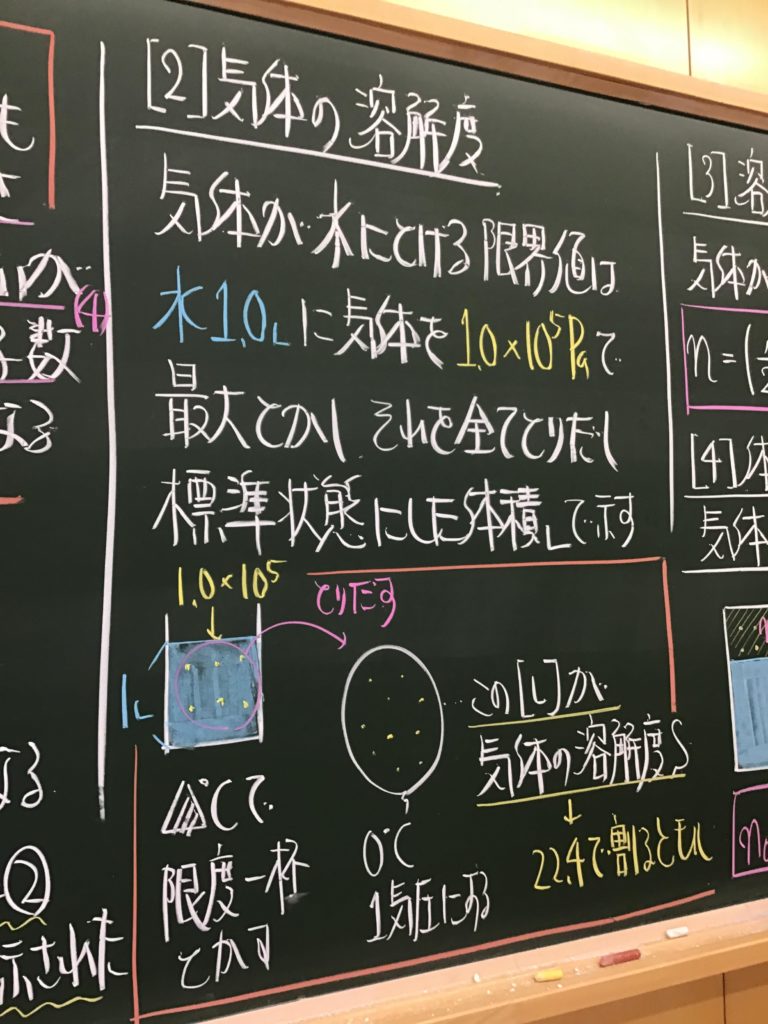 も
(4)
数
なる
なる
②
示された
[2]気体の溶解度
気体が水にとける限界値は
水1.0Lに気体を1.0×10⁵Paで
最大とかし それを全てとりだし
標準状態にした体積Lで示す
1.0×10⁵
とりだす
1L
△℃で
限度一杯
とかす
0℃
1気圧にする
この[L]が
気体の溶解度S
↓
22.4で割るとmol
[3]溶
気体が
n=(
[4]体
気体